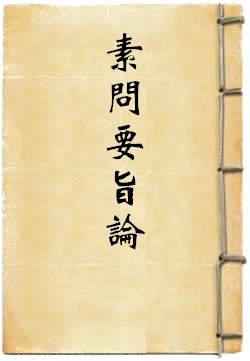 素問要旨論